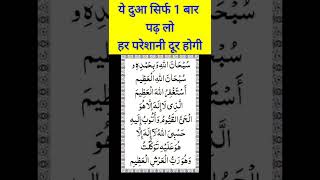 ये दुआ सिर्फ 1 बार
पढ़ लो
हर परेशानी दूर होगी
سُبْحَانَ اللهِ وَبِحَمْدِهٖ
سُبْحَانَ اللهِ الْعَظِيْمِ
أَسْتَغْفِرُ اللهَ الْعَظِيْمَ
الَّذِىْ لَا إِلٰهَ إِلَّا هُوَ
الْحَىُّ الْقَيُّوْمُ وَأَتُوْبُ إِلَيْهِ
حَسْبِىَ اللهُ لَا إِلٰهَ إِلَّا
هُوَ عَلَيْهِ تَوَكَّلْتُ
وَهُوَ رَبُّ الْعَرْشِ الْعَظِيْمِ